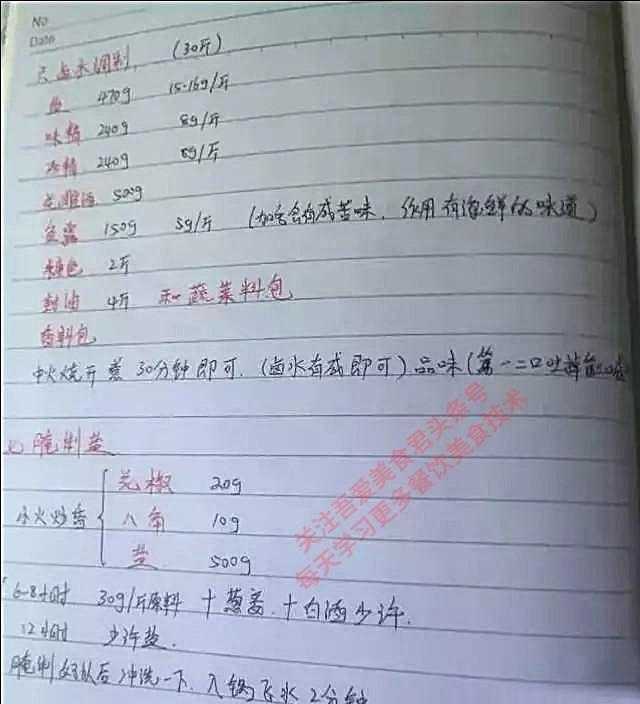 No
Date
卤水调制 (30斤)
盐 470g 15-16g/斤
味精 240g 8g/斤
鸡精 240g 8g/斤
花雕酒 500g
鱼露 150g 5g/斤 (加多会有咸苦味，作用有海鲜的味道)
2斤
封油 4斤 和蔬菜料包
香料包
中火烧开熬 30分钟即可.(卤水有咸即可)品味(第一二口吐掉
腌制盐
小火炒香
花椒 20g
八角 10g
盐 500g
6-8小时 30g/斤原料 + 葱姜. + 白酒少许.
12小时 少许盐.
腌制好以后冲洗一下.入锅飞水 2分钟
关注吾爱美食君头条号
每天学习更多餐饮美食技术